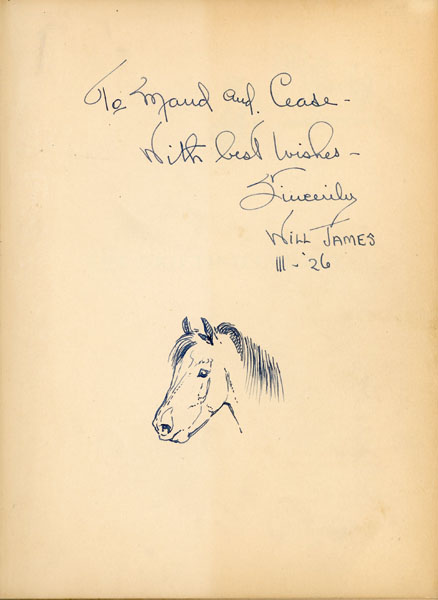 To Maud and Cease -
With best Wishes -
Sincerily
WILL JAMES
III - '26